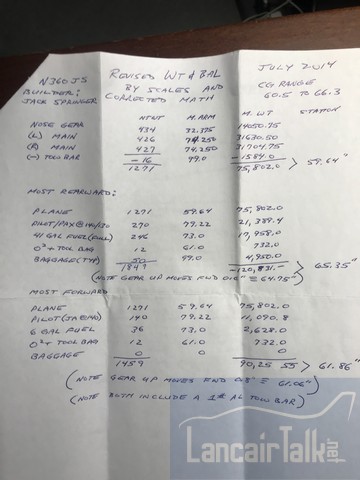 N360JS REVISED WT & BAL JULY 2014
BUILDER: BY SCALES AND CG RANGE
JACK SPRINGER CORRECTED MATH 60.5 TO 66.3
NTNT M.ARM M.WT STATION
NOSE GEAR 434 32.375 14050.75
(L) MAIN 426 74.250 31630.50
(R) MAIN 427 74.250 31704.75
(-) TOW BAR -16 99.0 -1584.0
1271 75,802.0 > 59.64"
MOST REARWARD:
PLANE 1271 59.64 75,802.0
PILOT/PAX@ 270 79.22 21,389.4
41 GAL FUEL(FULL) 246 73.0 17,958.0
O2+ TOOL BAG 12 61.0 732.0
BAGGAGE(TYP) 50 99.0 4,950.0
1849 -120,831.- > 65.35"
(NOTE GEAR UP MOVES FWD 0.6" = 64.75")
MOST FORWARD
PLANE 1271 59.64 75,802.0
PILOT 140 79.22 11,090.8
6 GAL FUEL 36 73.0 2,628.0
O2+ TOOL BAG 12 61.0 732.0
BAGGAGE 0 0 0
1459 90,25 > 61.86"
(NOTE GEAR UP MOVES FWD 0.8" = 61.06")
(NOTE BOTH INCLUDE A 1# AL TOW BAR)
LancairTalk.net